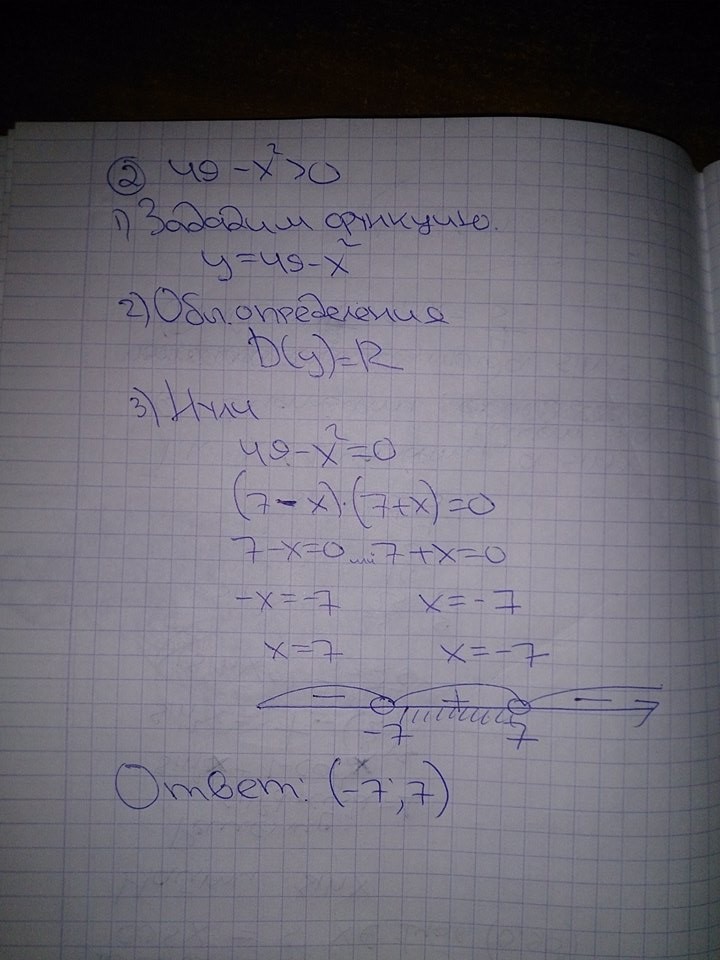 ② 49 - x² > 0
1) Зададим функцию.
y = 49 - x²
2) Обл. определения
D(y) = R
3) Нули
49 - x² = 0
(7 - x)·(7 + x) = 0
7 - x = 0 или 7 + x = 0
-x = -7 x = -7
x = 7 x = -7
- + -
-7 7
Ответ: (-7; 7)